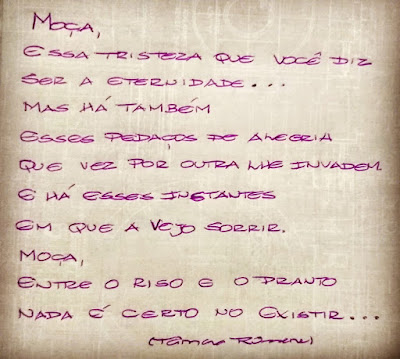 MOÇA,
ESSA TRISTEZA QUE VOCÊ DIZ
SER A ETERNIDADE...
MAS HÁ TAMBÉM
ESSES PEDAÇOS DE ALEGRIA
QUE VEZ POR OUTRA LHE INVADEM
E HÁ ESSES INSTANTES
EM QUE A VEJO SORRIR.
MOÇA,
ENTRE O RISO E O PRANTO
NADA É CERTO NO EXISTIR...